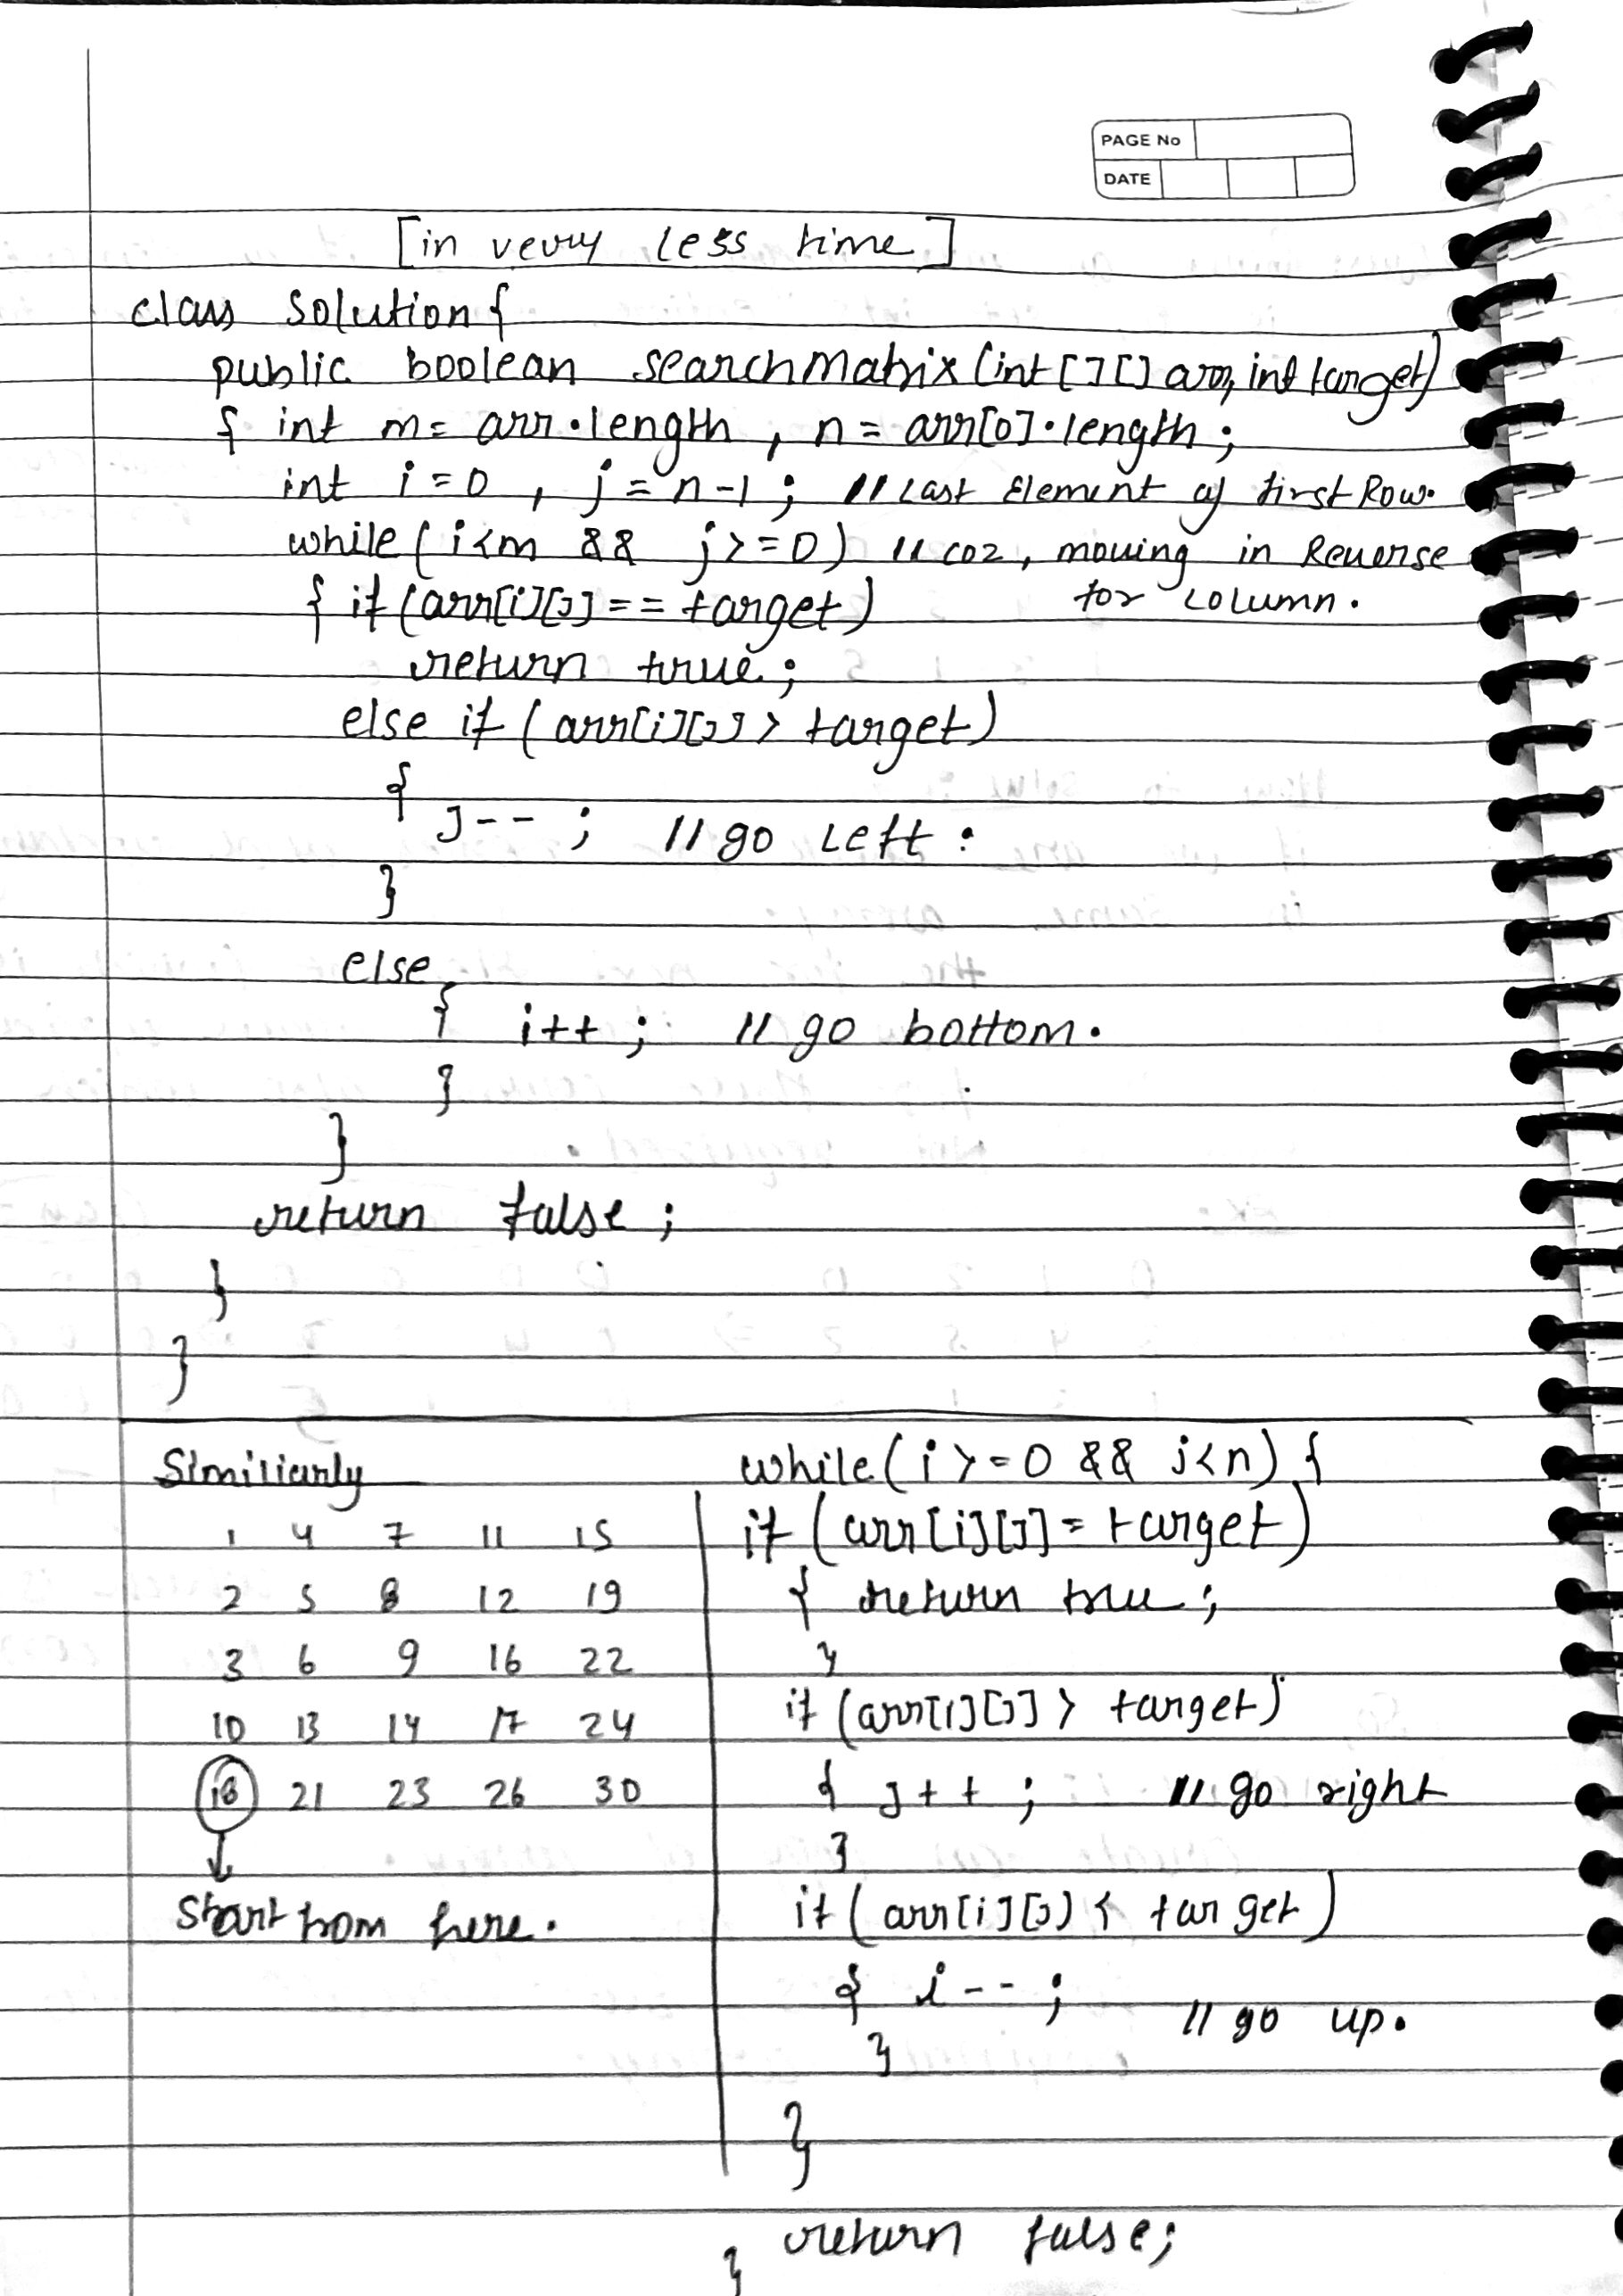 PAGE No
DATE
[in very less time]
class Solution{
public boolean searchMatrix(int[][] arr, int target)
{ int m = arr.length , n = arr[0].length ;
int i = 0 , j = n-1 ; // Last Element of first Row.
while ( i<m && j>=0) // coz, moving in Reverse
for column.
{ if (arr[i][j] == target)
return true ;
else if ( arr[i][j] > target)
{
j-- ; // go Left :
}
else
{ i++ ; // go bottom.
}
}
return false ;
}
}
Similiarly
1 4 7 11 15
2 5 8 12 19
3 6 9 16 22
10 13 14 17 24
18 21 23 26 30
Start from here.
while ( i >= 0 && j<n) {
if (arr[i][j] = target)
{ return true ;
}
if (arr[i][j] > target)
{ j++ ; // go right
}
if ( arr[i][j) < target)
{ i-- ; // go up.
}
}
return false;
}